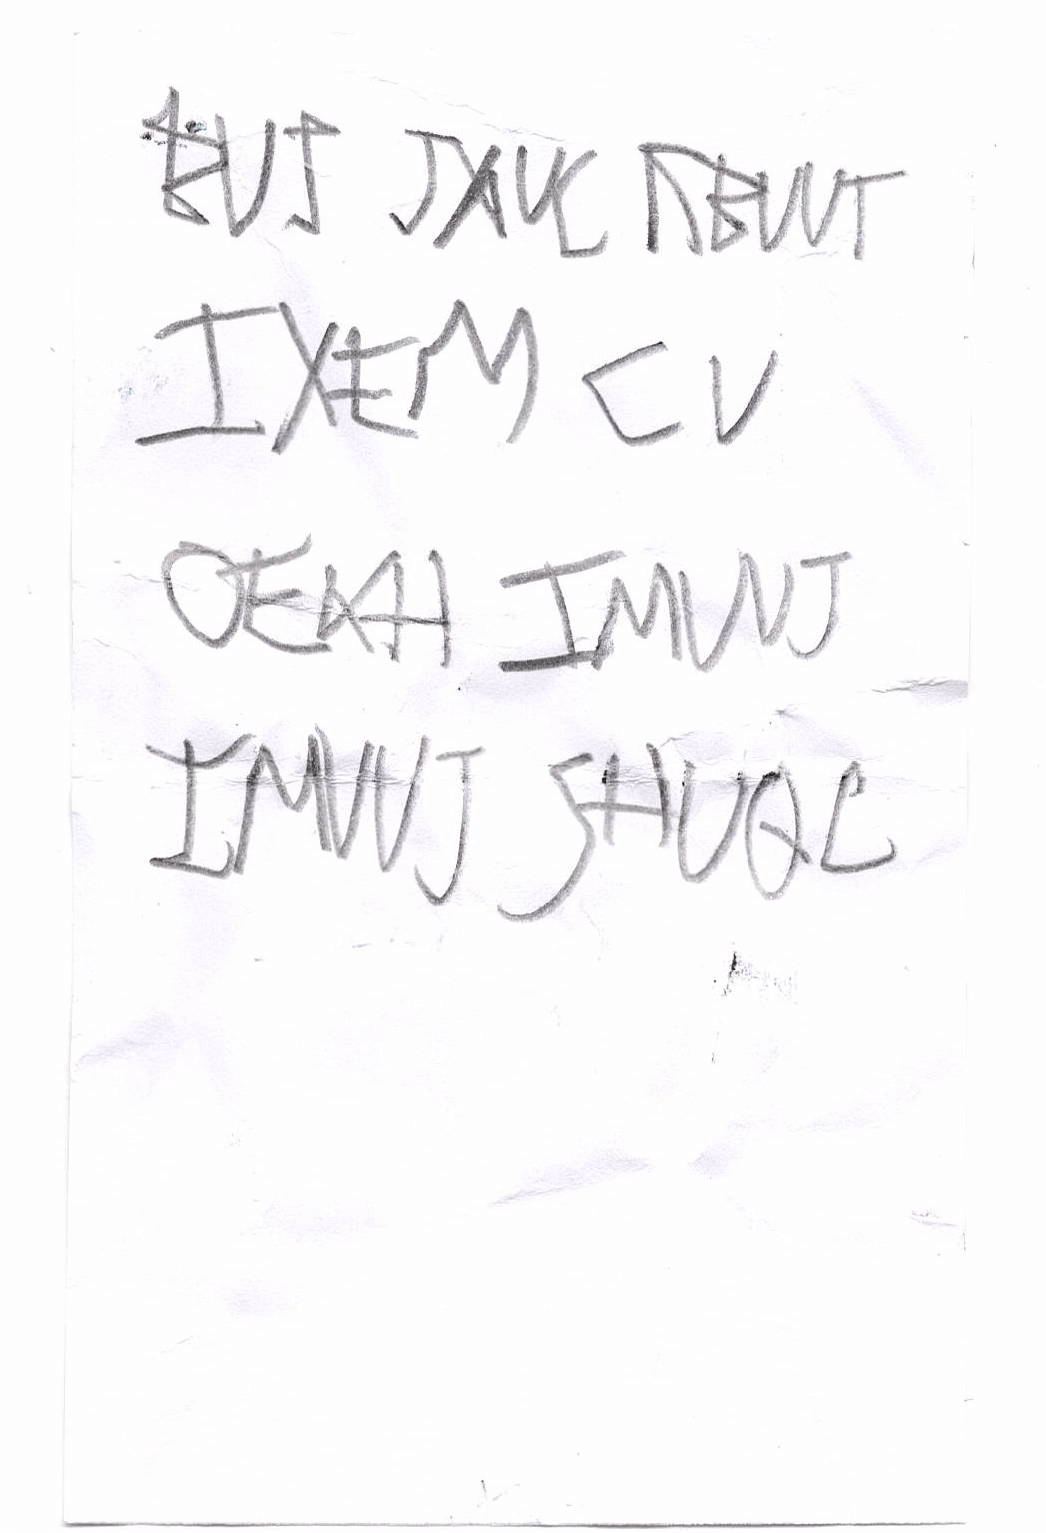 BUJ JXUC RBUUT
IXEM CU
OEKH IMUUJ
IMUUJ SHUQC